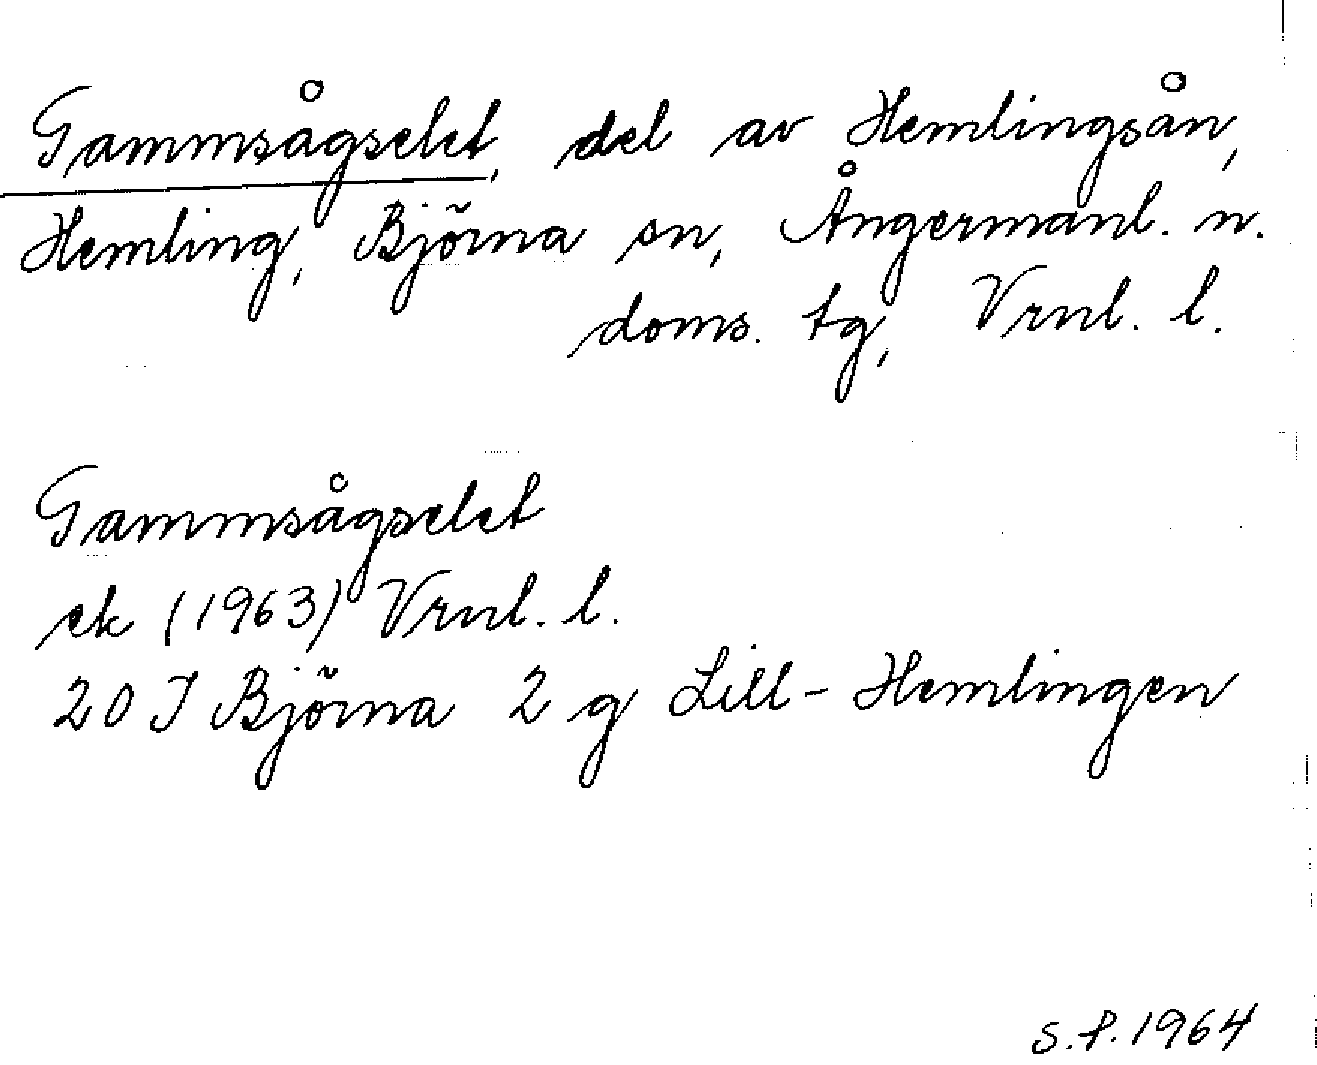 Gammsågselet, del av Hemlingsån,
Hemling, Björna sn, Ångermanl. n.
doms. tg, Vrnl. l.
Gammsågselet
ek (1963) Vrnl. l.
20 J Björna 2 g Lill-Hemlingen
S.P. 1964